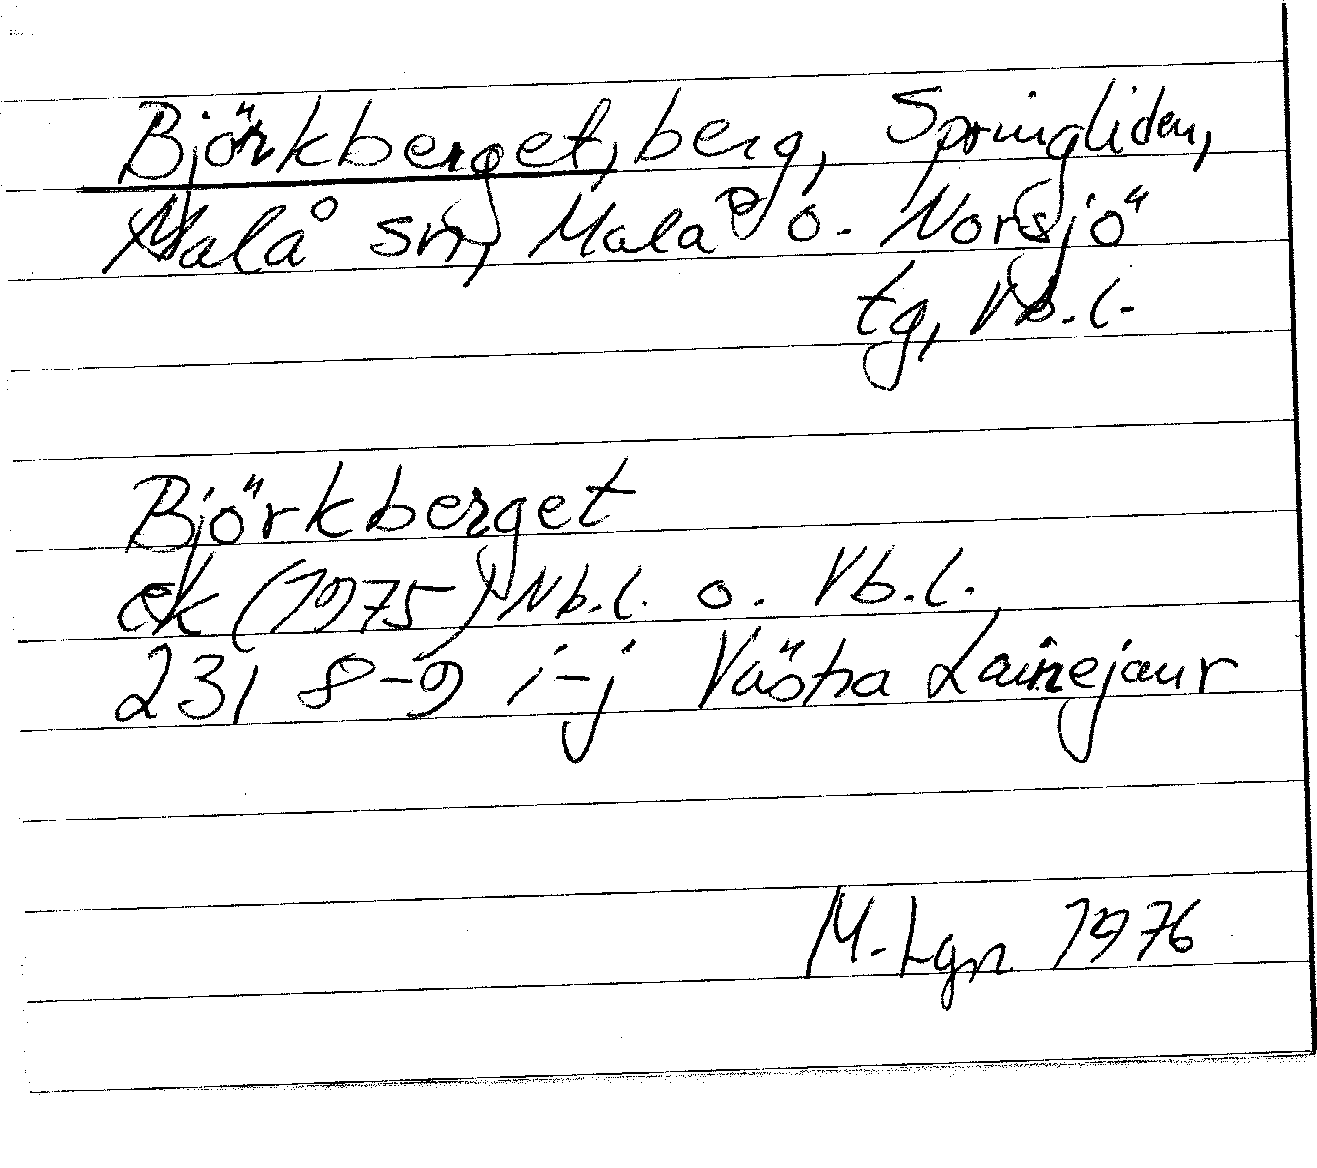 Björkberget, berg, Springliden,
Malå sn, Malå o. Norsjö
tg, Vb.l.
Björkberget
ek (1975) Nb.l. o. Vb.l.
23I 8-9 i-j Västra Lainejaur
M-Lgn 1976